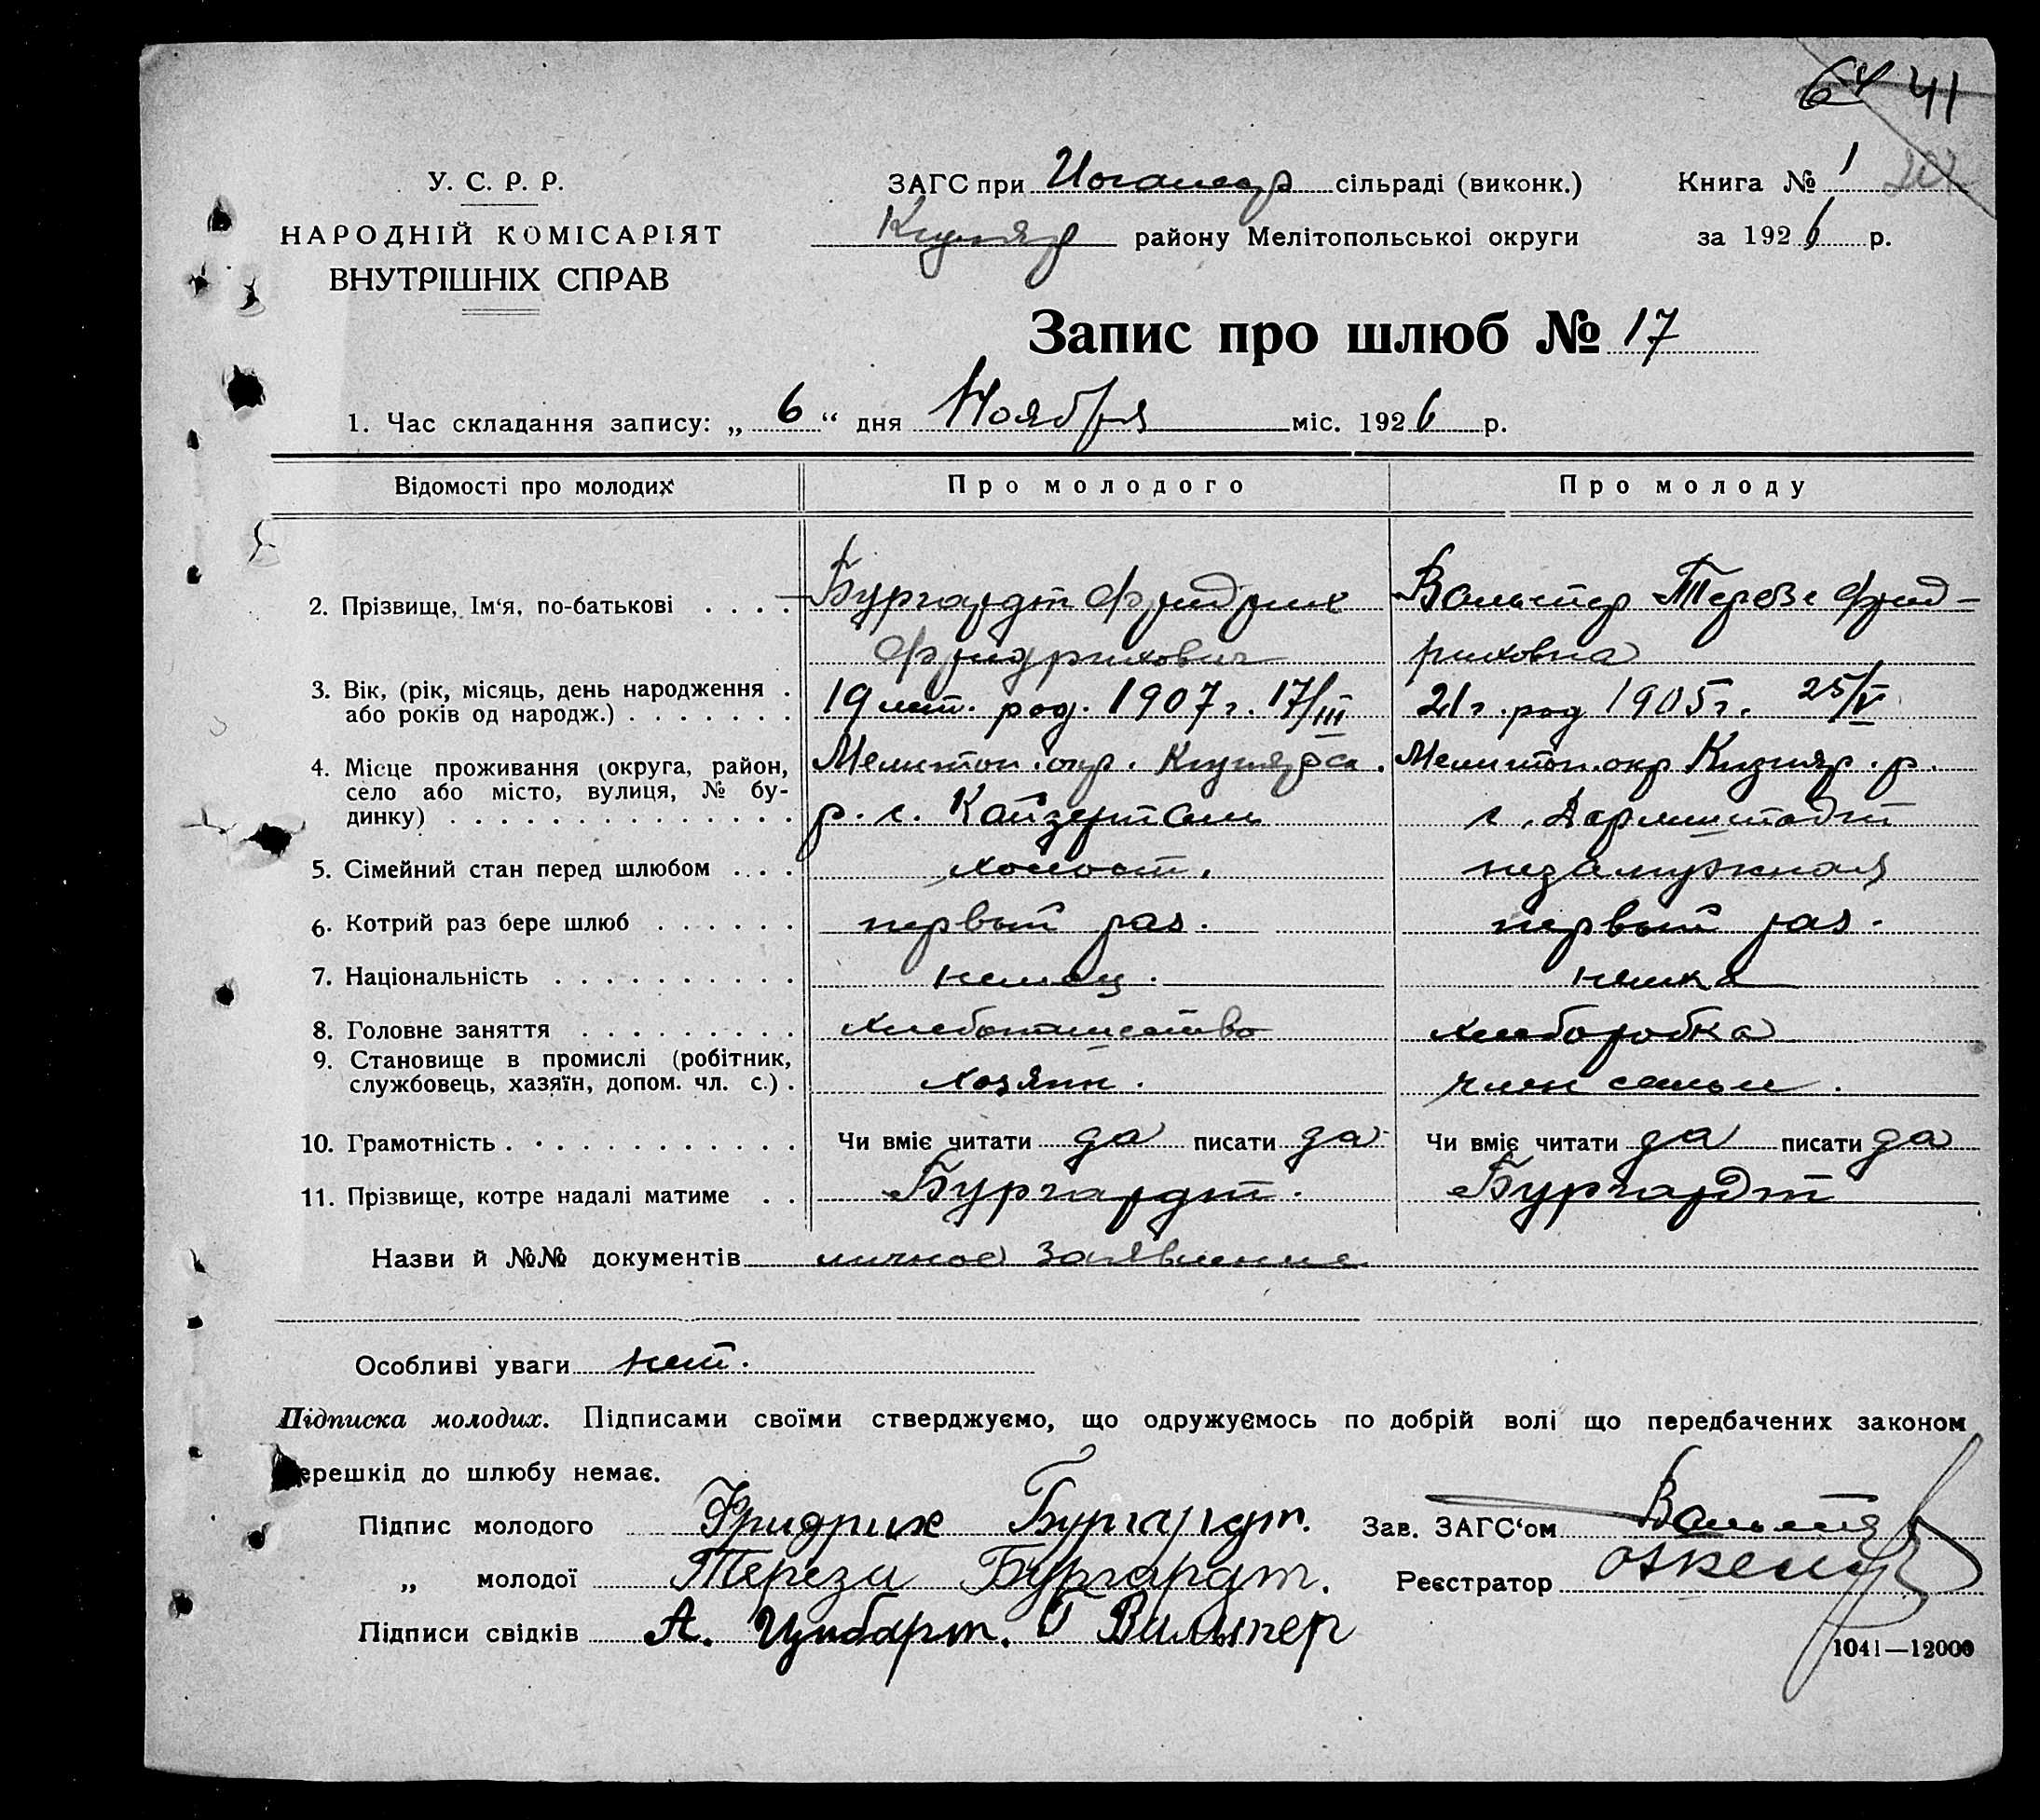 64 41
У. С. Р. Р.
ЗАГС при сільраді (виконк.) Книга № 1
НАРОДНІЙ КОМІСАРІЯТ
району Мелітопольської округи за 1926 р.
ВНУТРІШНІХ СПРАВ
Запис про шлюб № 17
1. Час складання запису: „ 6 “ дня Ноября міс. 1926 р.
Відомості про молодих Про молодого Про молоду
2. Прізвище, Ім‘я, по-батькові . . . . Бургардт Фридрих Вальтер Терезе Фрид-
Фридрихович риховна
3. Вік, (рік, місяць, день народження . 19 лет. род. 1907 г. 17/III 21 г. род 1905 г. 25/V
або років од народж.) . . . . . . .
4. Місце проживання (округа, район, Мелитоп. окр. Мелитоп. окр Кизияр. р.
село або місто, вулиця, № бу-
динку) . . . . . . . . . . . . . . р. с. Кайзерталь с. Дармштадт
5. Сімейний стан перед шлюбом . . . . холост. незамужная
6. Котрий раз бере шлюб . . . . . . первый раз. первый раз.
7. Національність . . . . . . . . . . немец. немка
8. Головне заняття . . . . . . . . . хлебопашество хлеборобка
9. Становище в промислі (робітник,
службовець, хазяїн, допом. чл. с.) . хозяин. член семьи.
10. Грамотність . . . . . . . . . . . . Чи вміє читати да писати да Чи вміє читати да писати да
11. Прізвище, котре надалі матиме . . Бургардт. Бургардт
Назви й №№ документів личное заявление
Особливі уваги нет.
Підписка молодих. Підписами своїми стверджуємо, що одружуємось по добрій волі що передбачених законом
ерешкід до шлюбу немає.
Підпис молодого Фридрих Бургардт. Зав. ЗАГС‘ом
„ молодої Тереза Бургардт. Реєстратор
Підписи свідків А. Цимбарт.
1041—12000